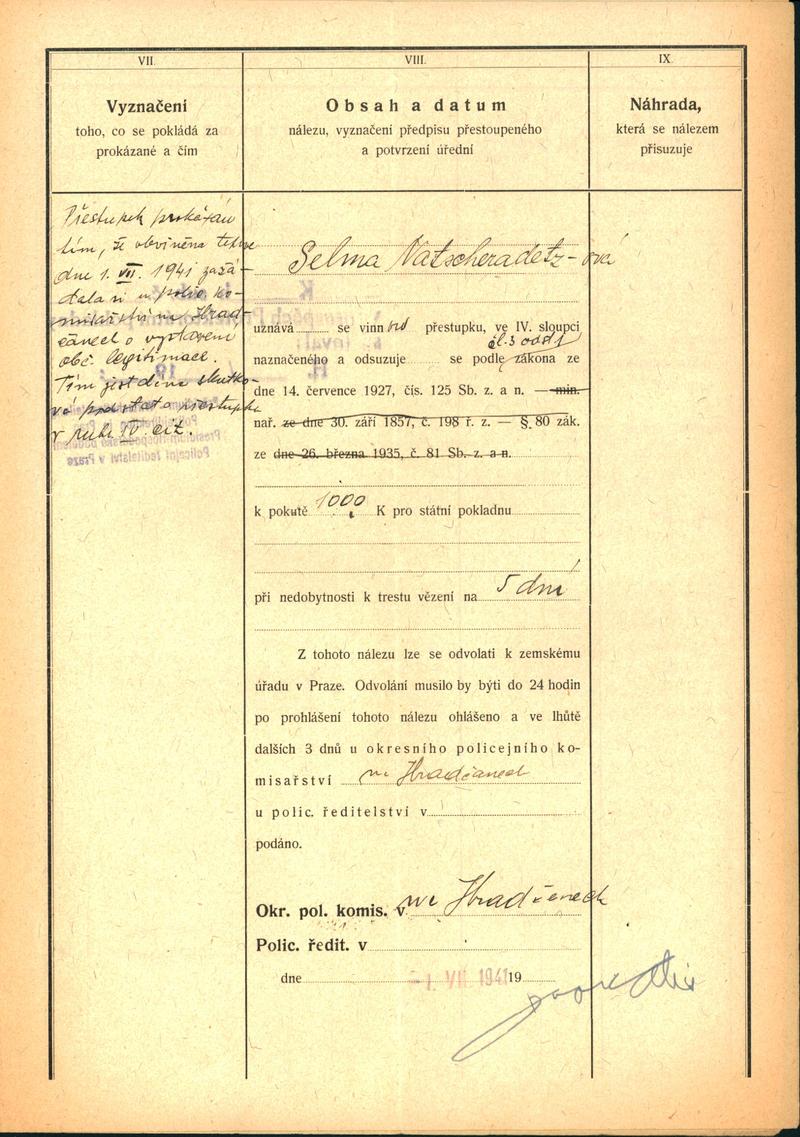 VII.
Vyznačení
toho, co se pokládá za
prokázané a čím
Přestupek prokázán
tím, že obviněná
dne 1. VII. 1941 zažá-
dala si u polic. ko-
misařství na Hrad-
čanech o vystavení
obč. legitimace.
Tím jest dána skutko-
vá podstata přestupku
v rubr. IV cit.
VIII.
Obsah a datum
nálezu, vyznačení předpisu přestoupeného
a potvrzení úřední
Selma Natscheradetz-ová
uznává se vinnou přestupku, ve IV. sloupci
čl. 3 odst 1
naznačeného a odsuzuje se podle zákona ze
dne 14. července 1927, čís. 125 Sb. z. a n. — min.
nař. ze dne 30. září 1857, č. 198 ř. z. — §. 80 zák.
ze dne 26. března 1935, č. 81 Sb. z. a n.
k pokutě 1000 K pro státní pokladnu
při nedobytnosti k trestu vězení na 5 dní
Z tohoto nálezu lze se odvolati k zemskému
úřadu v Praze. Odvolání musilo by býti do 24 hodin
po prohlášení tohoto nálezu ohlášeno a ve lhůtě
dalších 3 dnů u okresního policejního ko-
misařství na Hradčanech
u polic. ředitelství v
podáno.
Okr. pol. komis. v na Hradčanech
Polic. ředit. v
dne -1. VII. 1941 19
IX.
Náhrada,
která se nálezem
přisuzuje